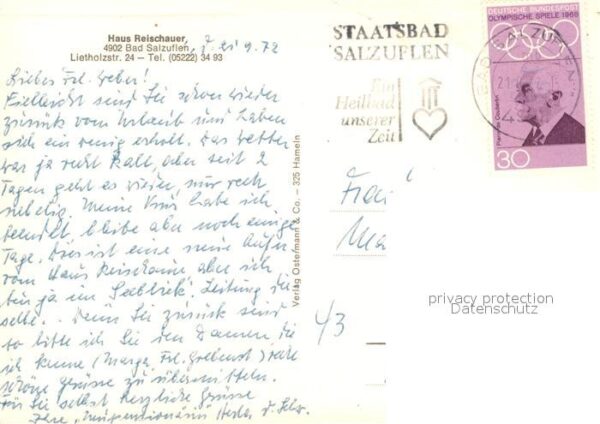 Haus Reischauer,
4902 Bad Salzuflen, d. 21.9.72
Lietholzstr. 24 — Tel. (05222) 34 93
Liebes Frl. Weber!
Vielleicht sind Sie schon wieder
zurück vom Urlaub und haben
sich ein wenig erholt. Das Wetter
war ja recht kalt, aber seit 2
Tagen geht es wieder, nur recht
nebelig. Meine Kur habe ich
beendet, bleibe aber noch einige
Tage. Dies ist eine neue Aufn.
vom Haus Reischauer aber ich
bin ja im "Seeblick". Leitung die-
selbe. Wenn Sie zurück sind
so bitte ich Sie den Damen die
ich kenne (Marga, Frl.) recht
schöne Grüsse zu übermitteln.
Für Sie selbst herzliche Grüsse
Ihre
Verlag Ostermann & Co. — 325 Hameln
STAATSBAD
SALZUFLEN
Ein
Heilbad
unserer
Zeit
BAD SALZUFLEN
DEUTSCHE BUNDESPOST
OLYMPISCHE SPIELE 1968
Pierre de Coubertin
30
43
privacy protection
Datenschutz